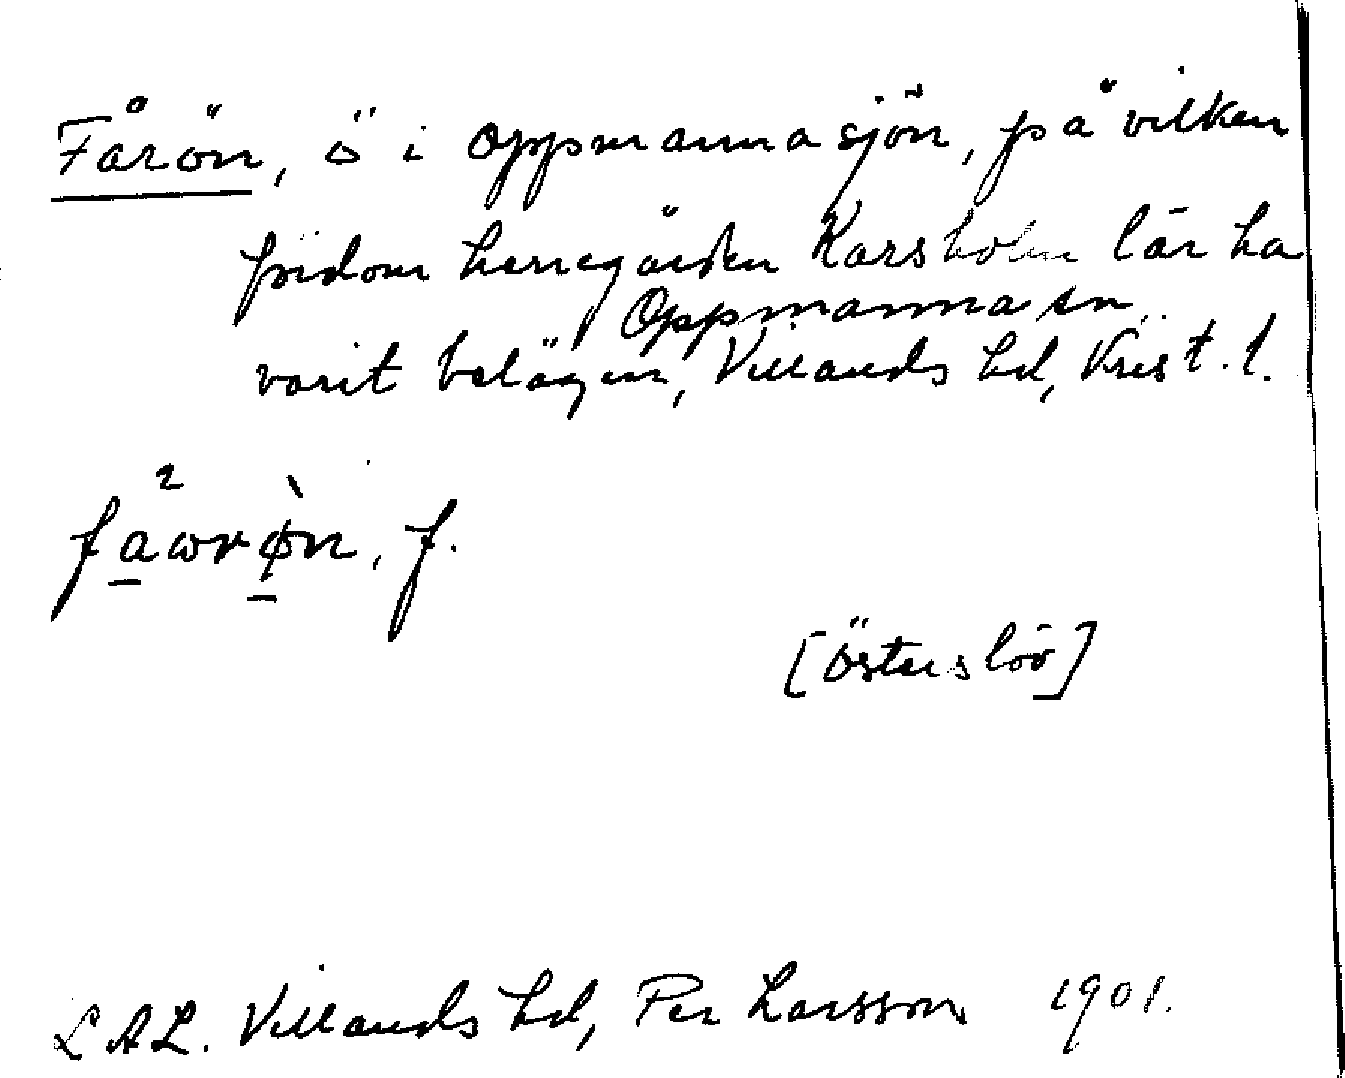 Fårön, ö i Oppmannasjön, på vilken
fördom herregården Karsholm lär ha
Oppmanna sn
varit belägen, Villands hd, Krist. l.
fa²wrø̀n, f.
[Österslöv]
LAL. Villands hd, Per Larsson 1901.